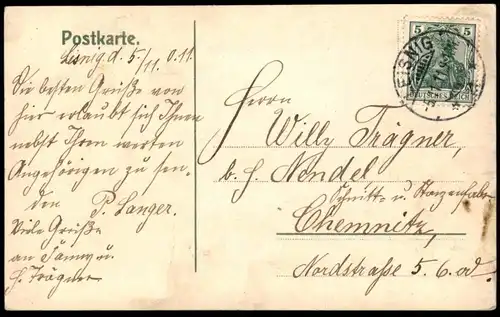 Postkarte.
Leisnig d. 5/11. 011.
Die besten Grüße von
hier erlaubt sich Ihnen
nebst Ihren werten
Angehörigen zu sen-
den P. Langer.
Viele Grüße
an u.
H. Trägner
5 5
DEUTSCHES REICH
LEISNIG
Herrn
Willy Trägner,
b. H. Nendel
Schnitte- u. Stanzenfabr.
Chemnitz,
Nordstraße 5. 6. od.